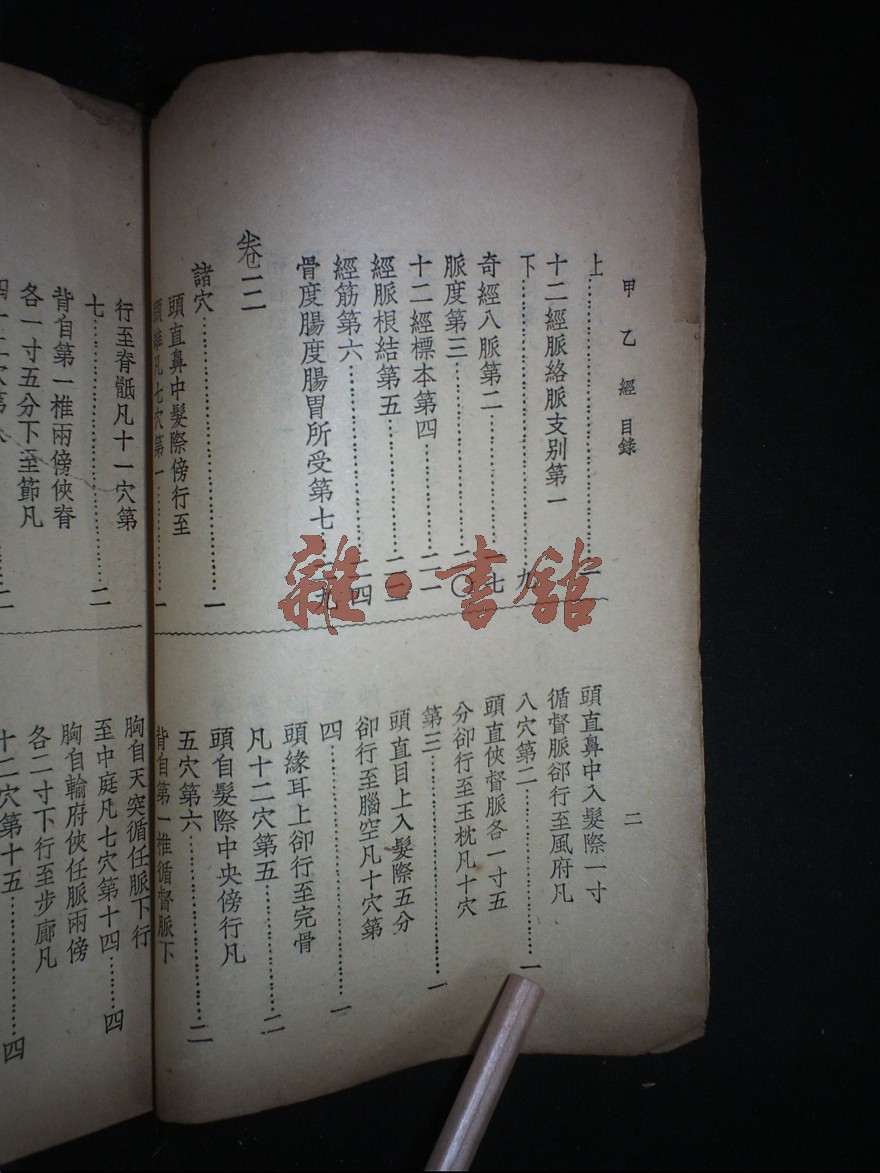 甲乙經 目錄
二
上
十二經脈絡脈支别第一
下 九
奇經八脈第二 一七
脈度第三 二〇
十二經標本第四 二一
經脈根結第五 二三
經筋第六 二四
骨度腸度腸胃所受第七 二九
卷三
諸穴 一
頭直鼻中髮際傍行至
頭維凡七穴第一 一
頭直鼻中入髮際一寸
循督脈卻行至風府凡
八穴第二 一
頭直俠督脈各一寸五
分卻行至玉枕凡十穴
第三 一
頭直目上入髮際五分
卻行至腦空凡十穴第
四 一
頭緣耳上卻行至完骨
凡十二穴第五 二
頭自髮際中央傍行凡
五穴第六 二
背自第一椎循督脈下
行至脊骶凡十一穴第
七 二
背自第一椎兩傍俠脊
各一寸五分下至節凡
胸自天突循任脈下行
至中庭凡七穴第十四 四
胸自輸府俠任脈兩傍
各二寸下行至步廊凡
十二穴第十五 四
雜·書館